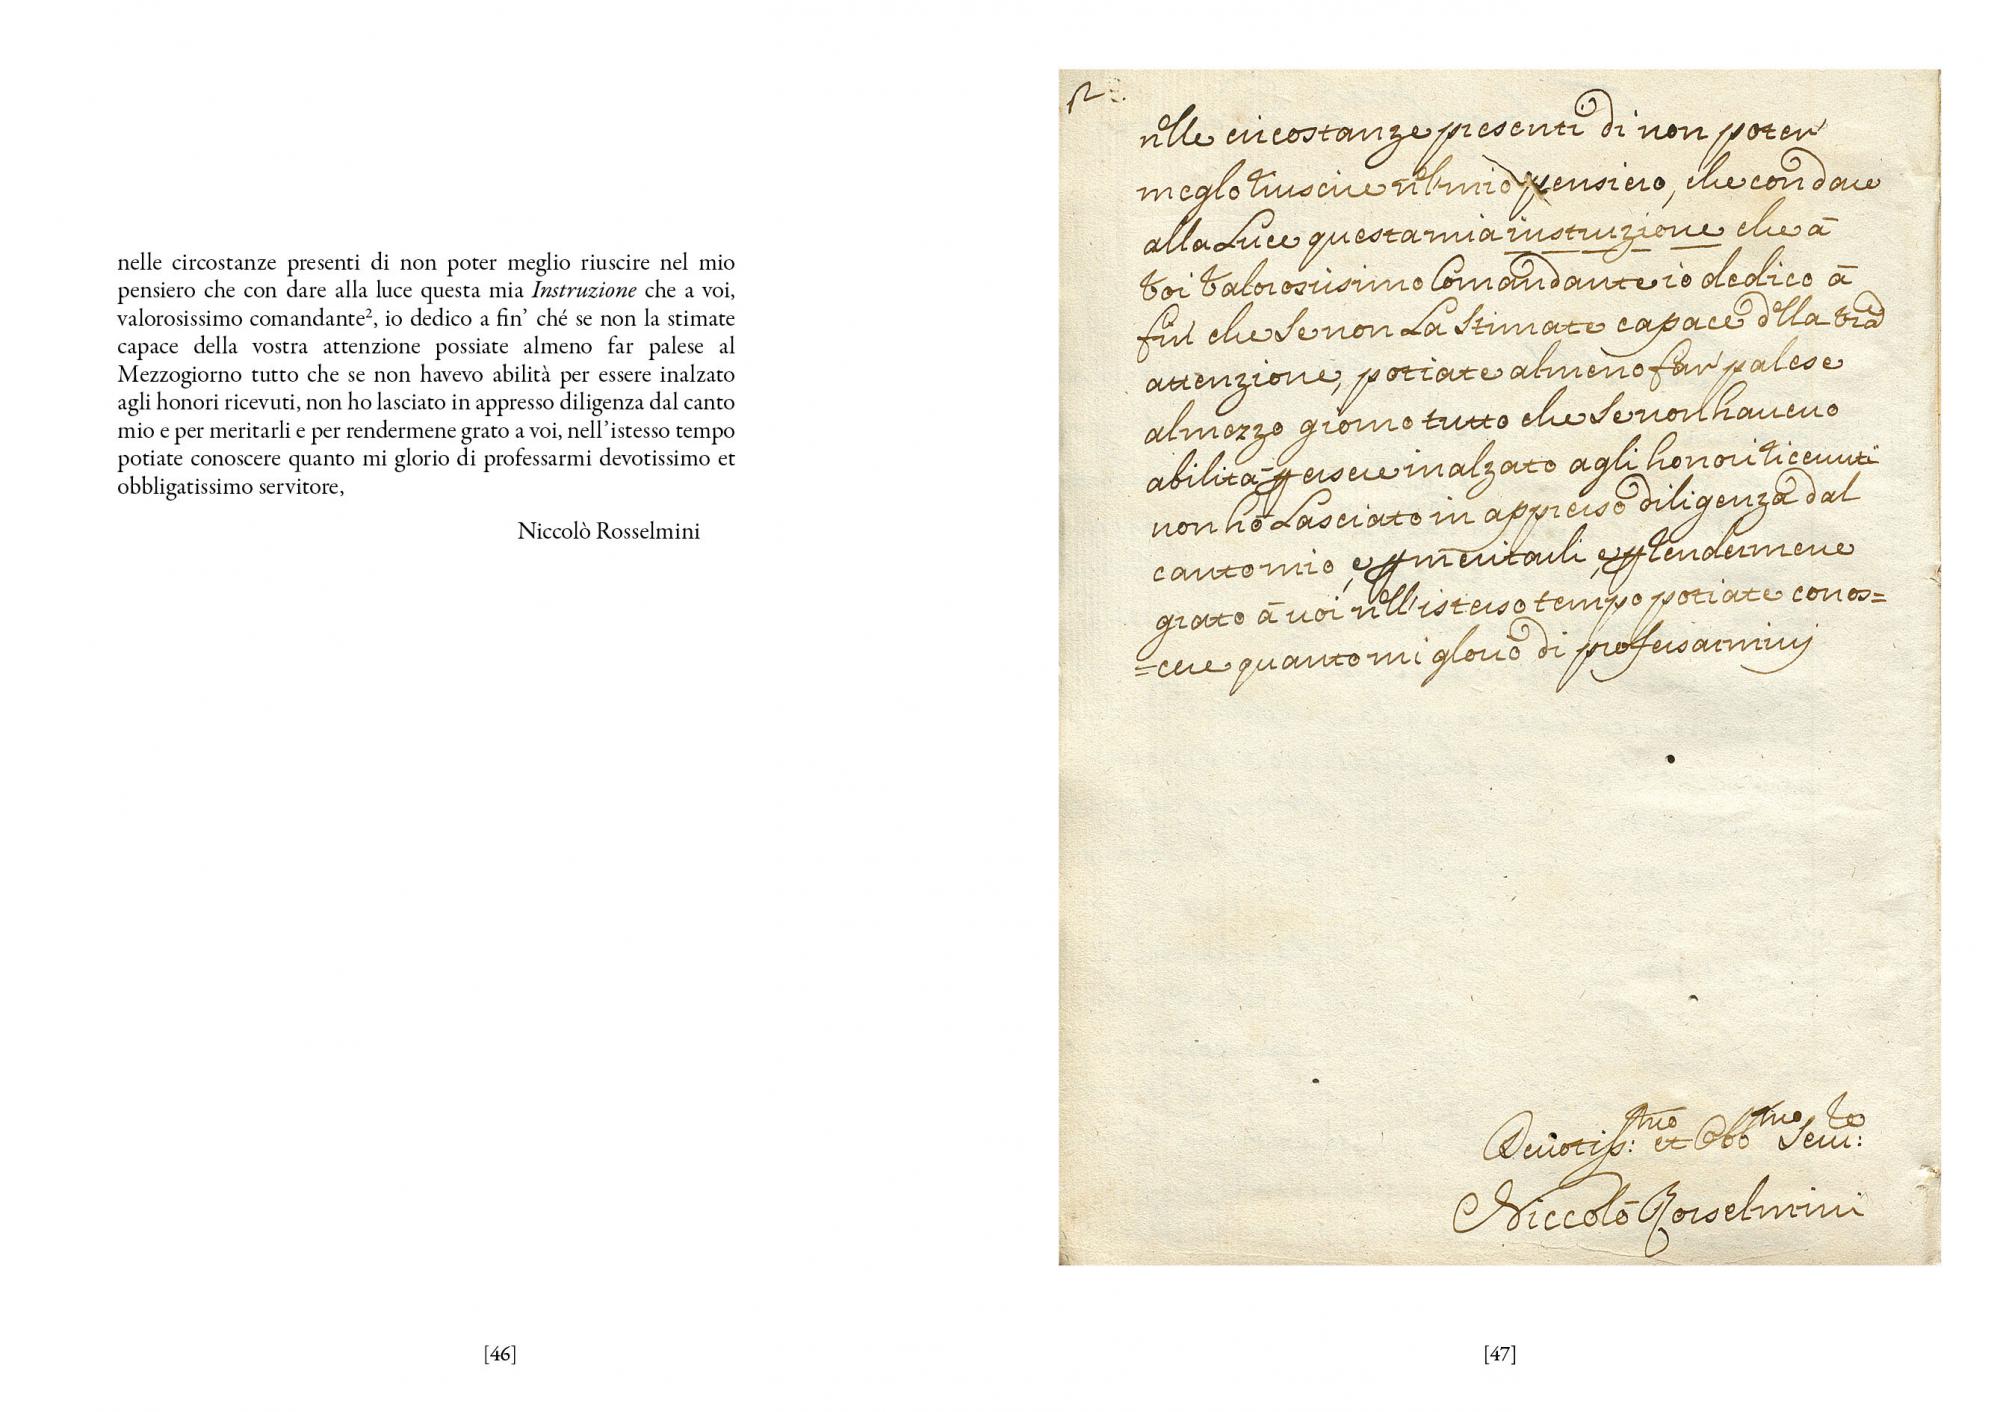 nelle circostanze presenti di non poter meglio riuscire nel mio
pensiero che con dare alla luce questa mia Instruzione che a voi,
valorosissimo comandante², io dedico a fin’ ché se non la stimate
capace della vostra attenzione possiate almeno far palese al
Mezzogiorno tutto che se non havevo abilità per essere inalzato
agli honori ricevuti, non ho lasciato in appresso diligenza dal canto
mio e per meritarli e per rendermene grato a voi, nell’istesso tempo
potiate conoscere quanto mi glorio di professarmi devotissimo et
obbligatissimo servitore,
Niccolò Rosselmini
[46]
nlle circostanze presenti di non poter
meglo riuscire nl mio pensiero, che con dare
alla Luce questa mia instruzione che à
Voi Valorosissimo Comandante io dedico à
fin' che se non La Stimate capace dlla vrā
attenzione, potiate almeno far palese
al mezzo giorno tutto che se non haveuo
abilità p essere inalzato agli honori riceuuti
non hò Lasciato in appresso diligenza dal
canto mio, e p meritarli, e p rendermene
grato à uoi nll'istesso tempo potiate conos=
=cere quanto mi glorio di professarmivi
Deuotiss:mo et Obb:mo Seru:re
Niccolò Rosselmini
[47]